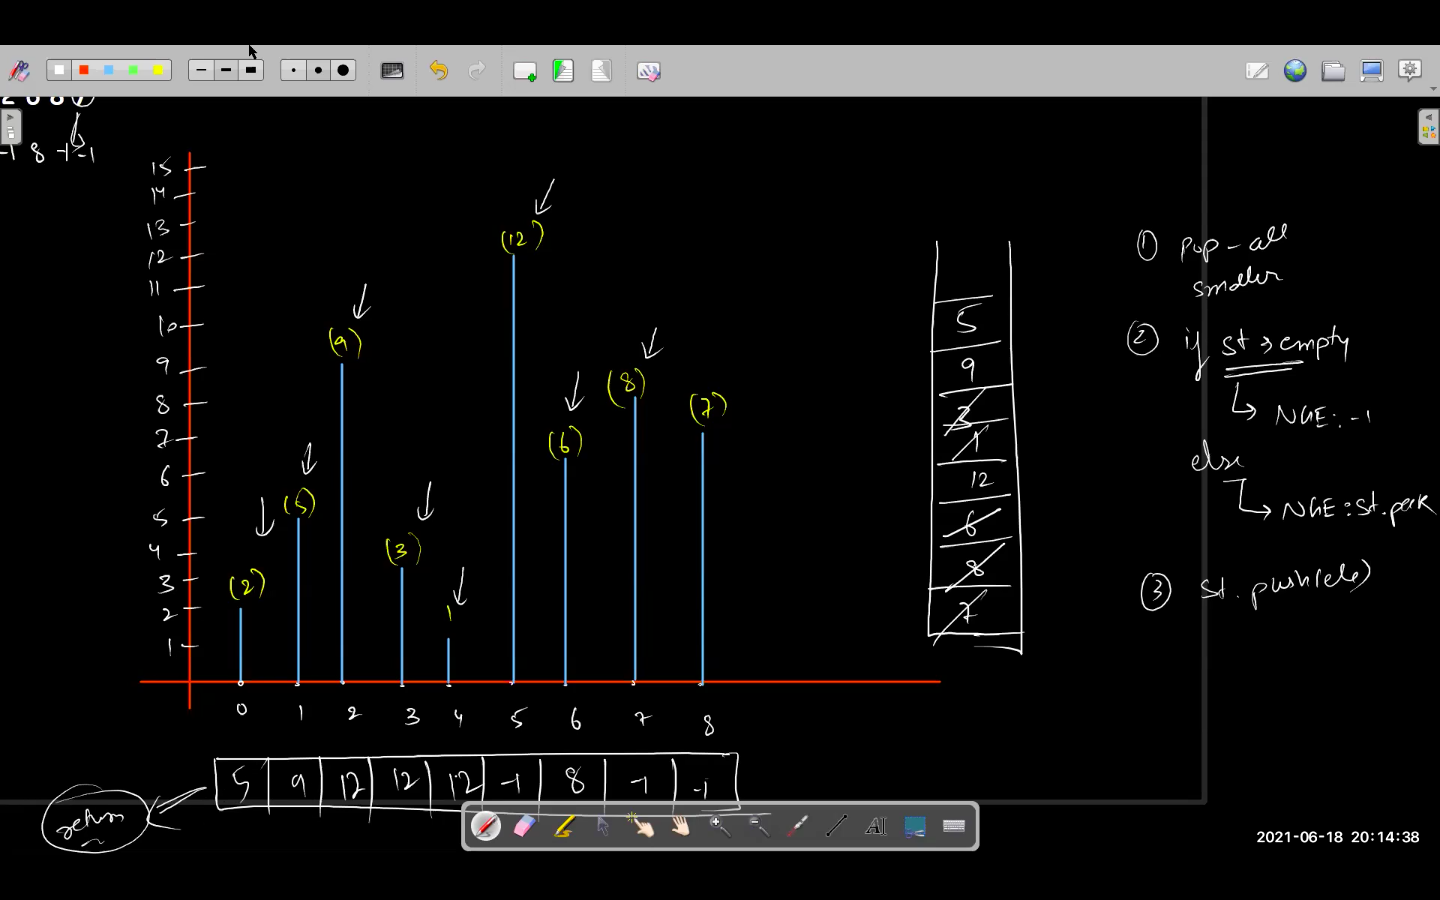 -1 8 -1 -1
15
14
13
12
11
10
9
8
7
6
5
4
3
2
1
(2)
(5)
(9)
(3)
1
(12)
(6)
(8)
(7)
0 1 2 3 4 5 6 7 8
5 9 12 12 12 -1 8 -1 -1
return
5
9
3
1
12
6
8
7
① pop-all
smaller
② if st → empty
NGE: -1
else
NGE: st.peek
③ st. push(ele)
AI
2021-06-18 20:14:38